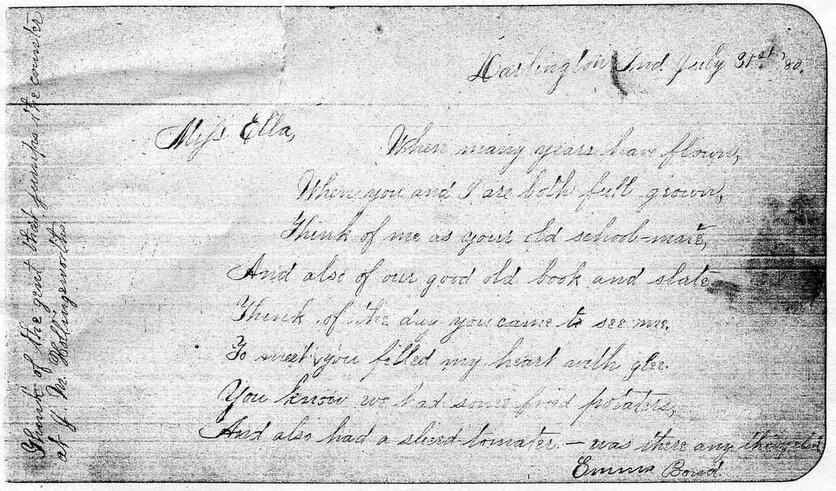 Darlington Ind. July 21st '80.
Miss Ella,
When many years have flown,
When you and I are both full grown,
Think of me as your old school-mate,
And also of our good old book and slate
Think of the day you came to see me.
To meet you filled my heart with glee.
You know we had some fried potatoes,
And also had a sliced tomater. – was there any
Emma Bond.
Think of the gent that jumps the counter
at J. M. Hollingsworths